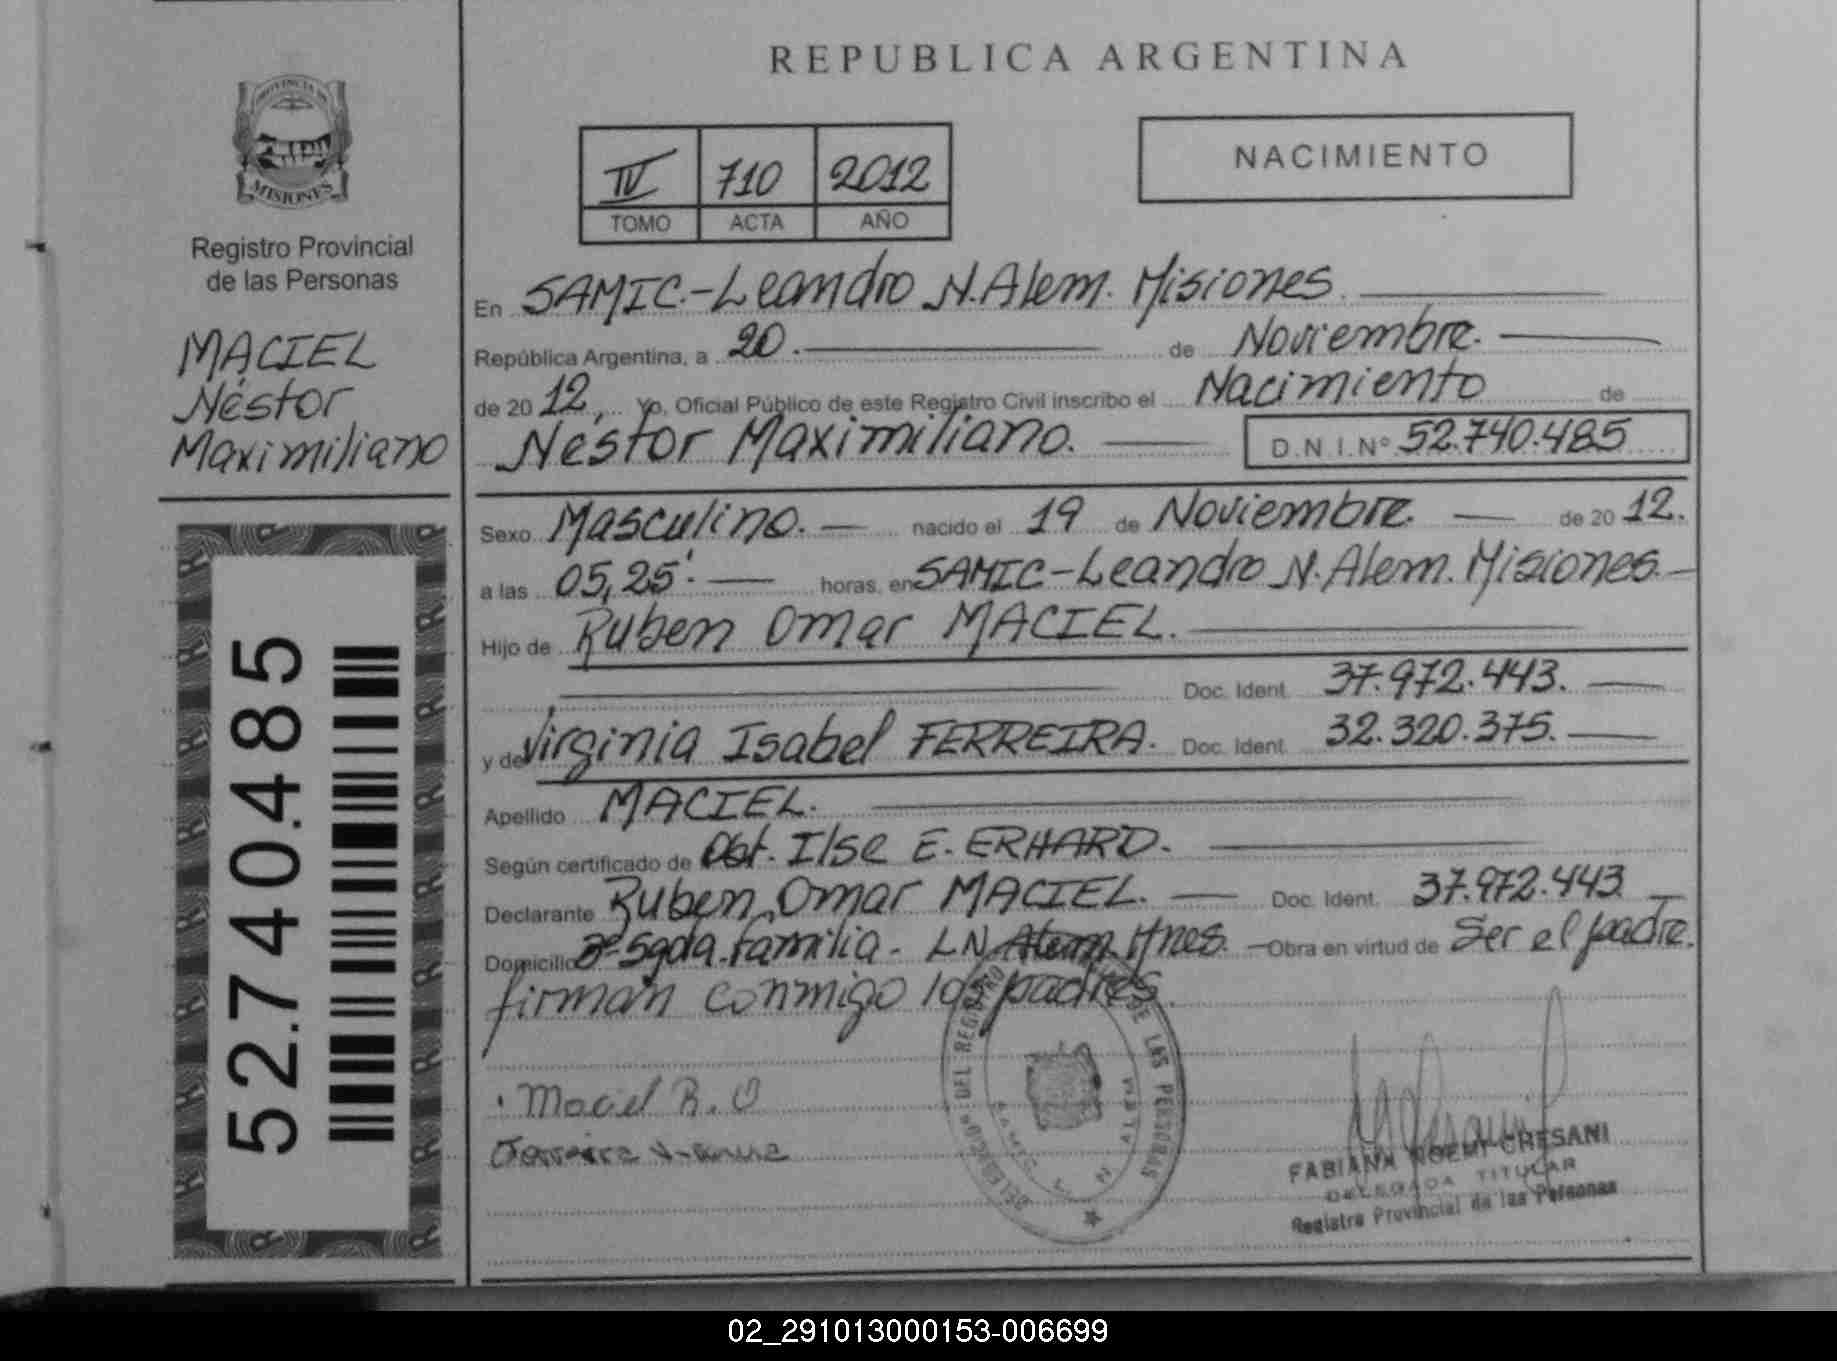 PROVINCIA DE
MISIONES
Registro Provincial
de las Personas
MACIEL
Néstor
Maximiliano
52.740.485
REPUBLICA ARGENTINA
IV 710 2012
TOMO ACTA AÑO
NACIMIENTO
En SAMIC.-Leandro N. Alem. Misiones.
República Argentina, a 20. de Noviembre.
de 20 12, Yo, Oficial Público de este Registro Civil inscribo el Nacimiento de
Néstor Maximiliano. D.N.I.Nº 52.740.485
Sexo Masculino. nacido el 19 de Noviembre. de 20 12.
a las 05,25'. horas, en SAMIC-Leandro N. Alem. Misiones.
Hijo de Ruben Omar MACIEL.
Doc. Ident. 37.972.443.
y de Virginia Isabel FERREIRA. Doc. Ident. 32.320.375.
Apellido MACIEL.
Según certificado de Obt. Ilse E. ERHARD.
Declarante Ruben Omar MACIEL. Doc. Ident. 37.972.443
Domicilio Bº Sgda. Familia - LN Alem Mnes. Obra en virtud de Ser el padre.
firman conmigo los padres
Maciel R. O
Ferreira
DEL REGISTRO DE LAS PERSONAS
FABIANA NOEMI CRESANI
DELEGADA TITULAR
Registro Provincial de las Personas
02_291013000153-006699